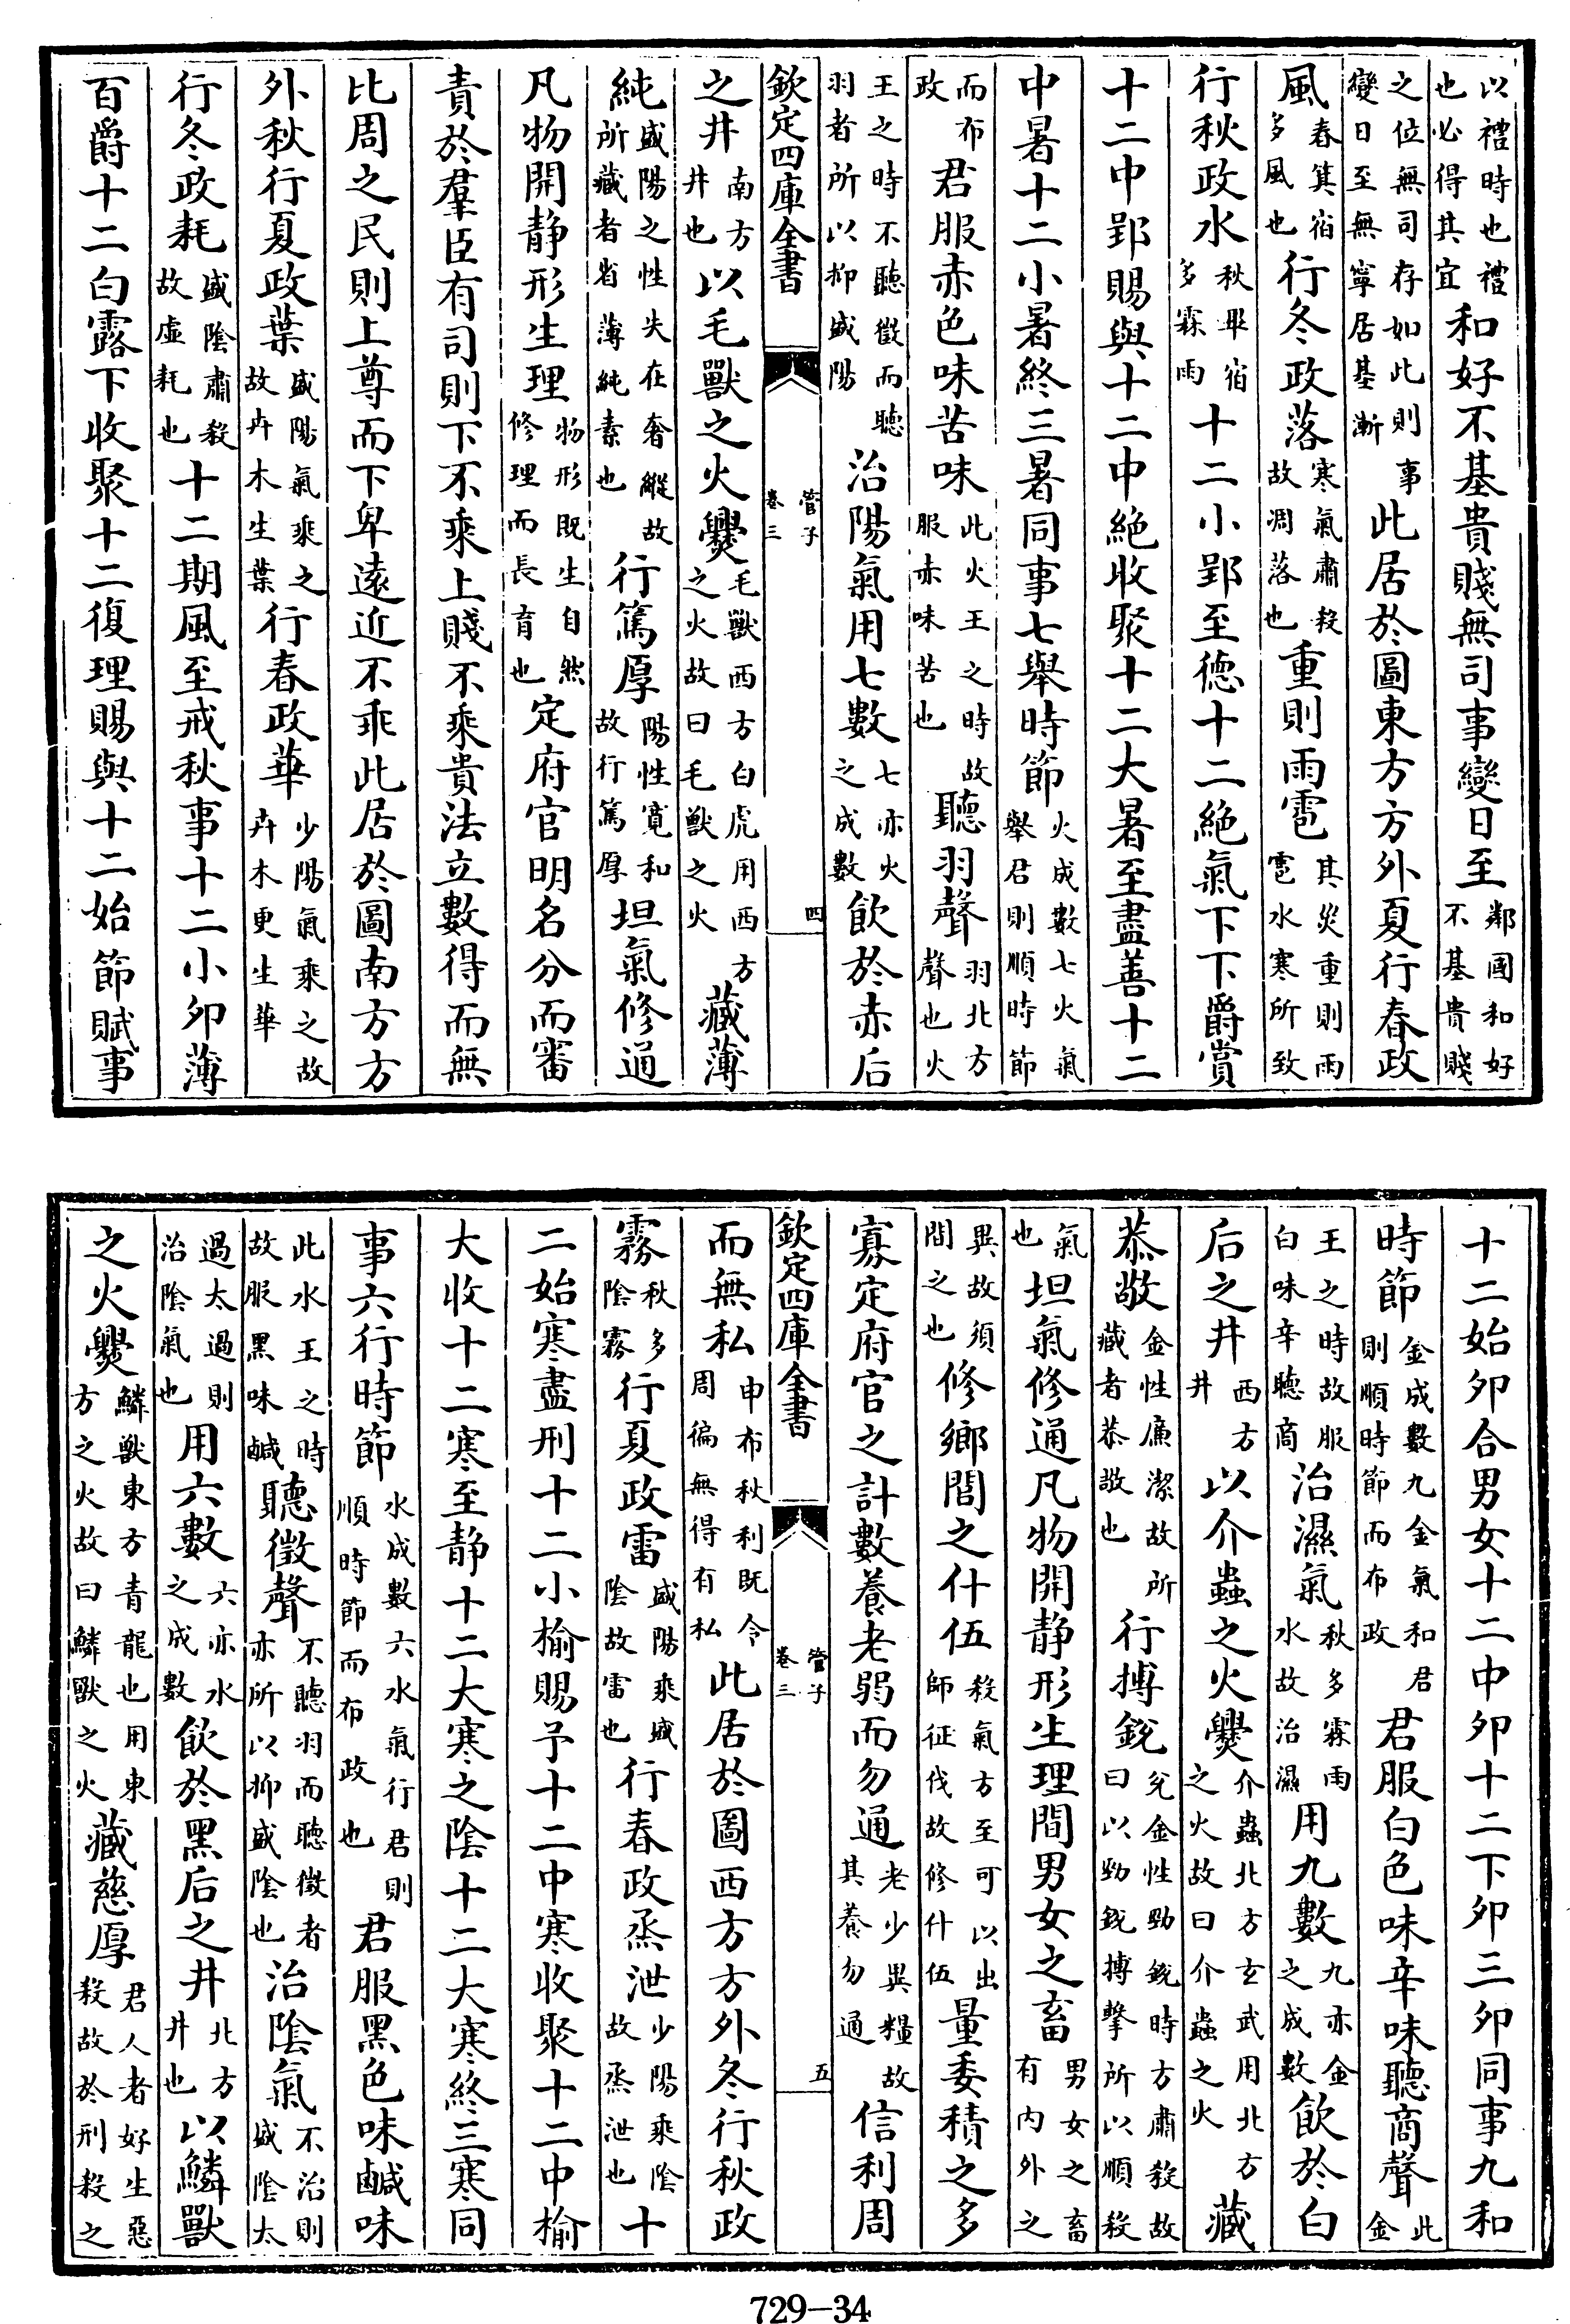 以禮時也禮也必得其宜和好不基貴賤無司事變日至鄰國和好不基貴賤
之位無司存如此則事變日至無寧居基漸此居於圖東方方外夏行春政
風春箕宿多風也行冬政落寒氣肅殺故凋落也重則雨雹其災重則雨雹水寒所致
行秋政水秋畢宿多霖雨十二小郢至德十二絕氣下下爵賞
十二中郢賜與十二中絕收聚十二大暑至盡善十二
中暑十二小暑終三暑同事七舉時節火成數七火氣舉君則順時節
而布政君服赤色味苦味此火王之時故服赤味苦也聽羽聲羽北方聲也火
王之時不聽徵而聽羽者所以抑盛陽治陽氣用七數七亦火之成數飲於赤后
欽定四庫全書 管子 卷三 四
之井南方井也以毛獸之火爨毛獸西方白虎用西方之火故曰毛獸之火藏薄
純盛陽之性失在奢縱故所藏者省薄純素也行篤厚陽性寬和故行篤厚坦氣修通
凡物開静形生理物形既生自然修理而長育也定府官明名分而審
責於羣臣有司則下不乘上賤不乘貴法立數得而無
比周之民則上尊而下卑遠近不乖此居於圖南方方
外秋行夏政葉盛陽氣乘之故卉木生葉行春政華少陽氣乘之故卉木更生華
行冬政耗盛陰肅殺故虛耗也十二期風至戒秋事十二小卯薄
百爵十二白露下收聚十二復理賜與十二始節賦事
十二始卯合男女十二中卯十二下卯三卯同事九和
時節金成數九金氣和君則順時節而布政君服白色味辛味聽商聲此金
王之時故服白味辛聽商治濕氣秋多霖雨水故治濕用九數九亦金之成數飲於白
后之井西方井以介蟲之火爨介蟲北方玄武用北方之火故曰介蟲之火藏
恭敬金性廉潔故所藏者恭敬也行搏銳兊金性勁銳時方肅殺故曰以勁銳搏擊所以順殺
氣也坦氣修通凡物開静形生理間男女之畜男女之畜有内外之
異故須間之也修鄉閭之什伍殺氣方至可以出師征伐故修什伍量委積之多
寡定府官之計數養老弱而勿通老少異糧故其養勿通信利周
欽定四庫全書 管子 卷三 五
而無私申布秋利既令周徧無得有私此居於圖西方方外冬行秋政
霧秋多陰霧行夏政雷盛陽乘盛陰故雷也行春政烝泄少陽乘陰故烝泄也十
二始寒盡刑十二小榆賜予十二中寒收聚十二中榆
大收十二寒至静十二大寒之陰十二大寒終三寒同
事六行時節水成數六水氣行君則順時節而布政也君服黑色味鹹味
此水王之時故服黑味鹹聽徵聲不聽羽而聽徵者亦所以抑盛陰也治陰氣不治則盛陰太
過太過則治陰氣也用六數六亦水之成數飲於黑后之井北方井也以鱗獸
之火爨鱗獸東方青龍也用東方之火故曰鱗獸之火藏慈厚君人者好生惡殺故於刑殺之
729-34